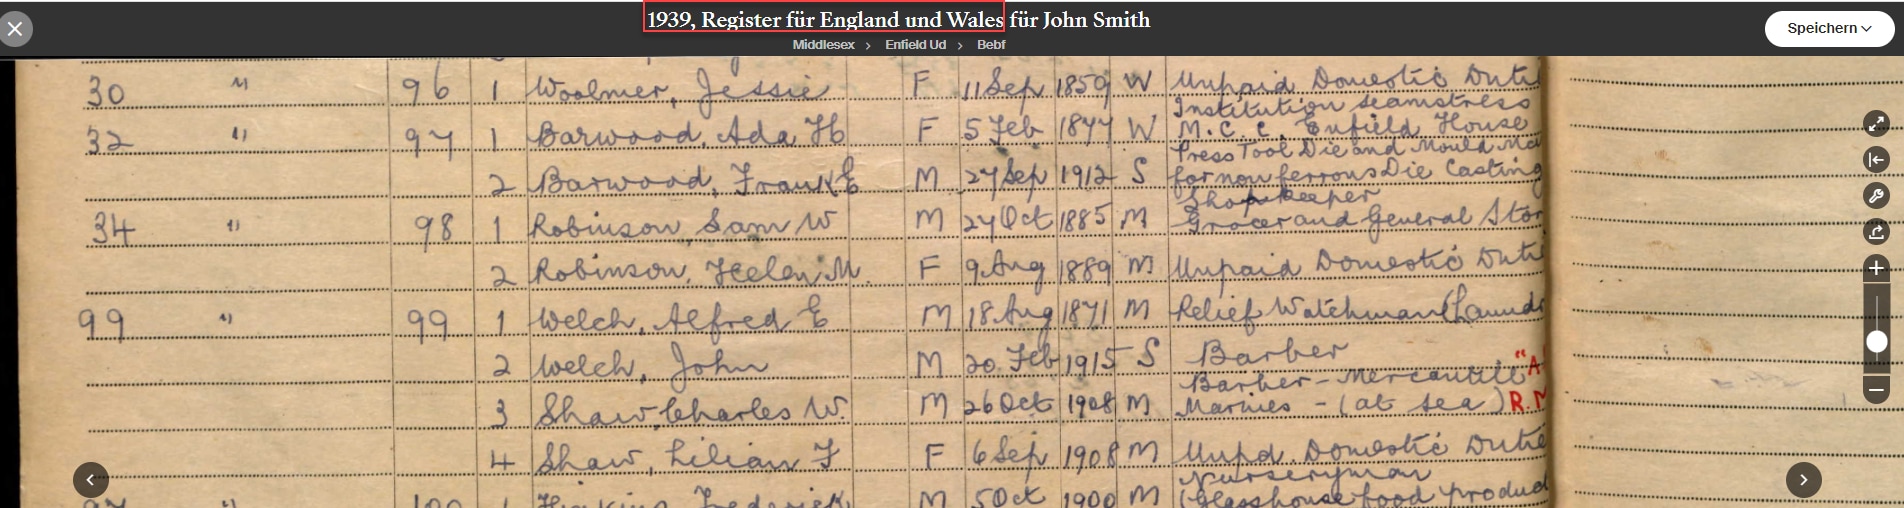 1939, Register für England und Wales für John Smith
Speichern
Middlesex > Enfield Ud > Bebf
30 " 96 1 Woolmer, Jessie F 11 Sep 1859 W Unpaid Domestic Duti
Institution seamstress
32 " 97 1 Barwood, Ada H F 5 Feb 1877 W M.C.C. Enfield House
Press Tool Die and Mould Ma
2 Barwood, Frank E M 27 Sep 1912 S for non ferrous Die Casting
Shopkeeper
34 " 98 1 Robinson, Sam W M 27 Oct 1885 M Grocer and General Stor
2 Robinson, Helen M F 9 Aug 1889 M Unpaid Domestic Duti
99 " 99 1 Welch, Alfred E M 18 Aug 1871 M Relief Watchman (Laund
2 Welch, John M 20 Feb 1915 S Barber
Barber - Mercantile "A
3 Shaw Charles W. M 26 Oct 1908 M Marines - (at sea) R.M
4 Shaw, Lilian F F 6 Sep 1908 M Unpd. Domestic Dutie
Nurseryman
" 100 1 Frederick M 5 Oct 1900 M (Glasshouse food produc